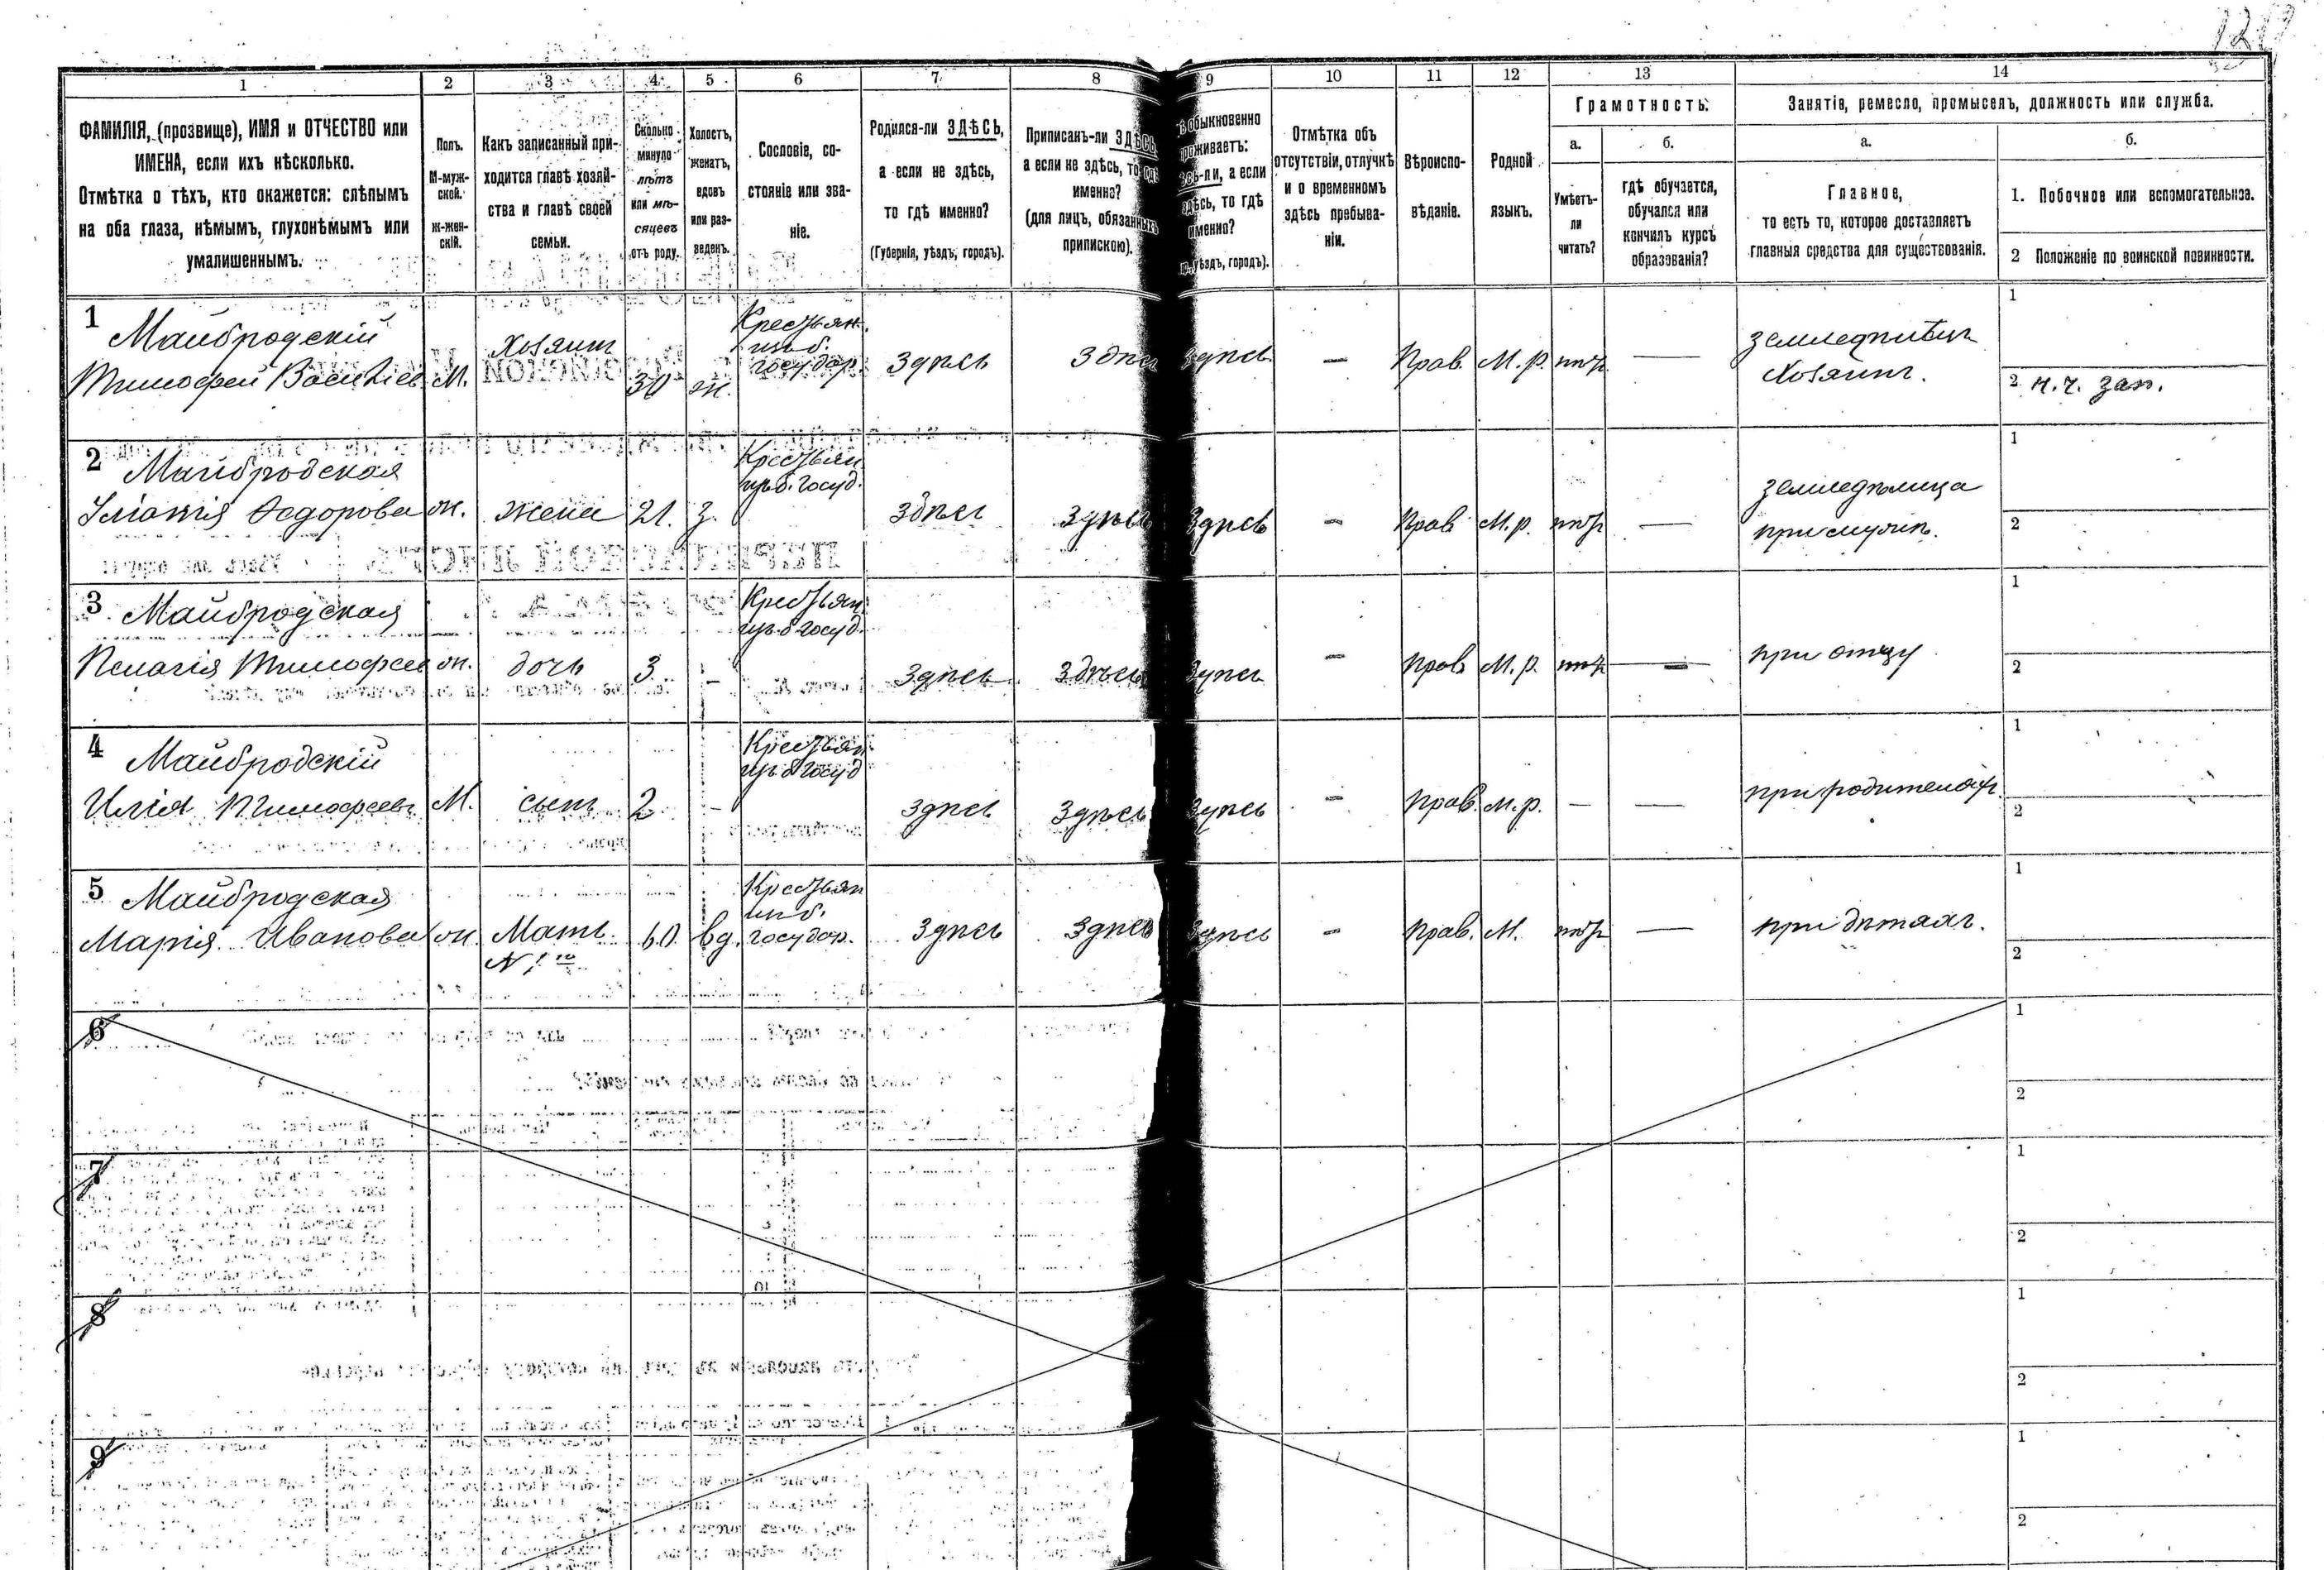 1 2 3 4 5 6 7 8 9 10 11 12 13 14
ФАМИЛІЯ, (прозвище), ИМЯ и ОТЧЕСТВО или
ИМЕНА, если ихъ нѣсколько.
Отмѣтка о тѣхъ, кто окажется: слѣпымъ
на оба глаза, нѣмымъ, глухонѣмымъ или
умалишеннымъ.
Полъ.
М-муж-
ской.
Ж-жен-
скій.
Какъ записанный при-
ходится главѣ хозяй-
ства и главѣ своей
семьи.
Сколько
минуло
лѣтъ
или мѣ-
сяцевъ
отъ роду.
Холостъ,
женатъ,
вдовъ
или раз-
веденъ.
Сословіе, со-
стояніе или зва-
ніе.
Родился-ли ЗДѢСЬ,
а если не здѣсь,
то гдѣ именно?
(Губернія, уѣздъ, городъ).
Приписанъ-ли ЗДѢСЬ,
а если не здѣсь, то гдѣ
именно?
(для лицъ, обязанныхъ
припискою).
обыкновенно
проживаетъ:
здѣсь-ли, а если
здѣсь, то гдѣ
именно?
уѣздъ, городъ).
Отмѣтка объ
отсутствіи, отлучкѣ
и о временномъ
здѣсь пребыва-
ніи.
Вѣроиспо-
вѣданіе.
Родной
языкъ.
Грамотность.
а.
Умѣетъ-
ли
читать?
б.
гдѣ обучается,
обучался или
кончилъ курсъ
образованія?
Занятіе, ремесло, промыселъ, должность или служба.
а.
Главное,
то есть то, которое доставляетъ
главныя средства для существованія.
б.
1. Побочное или вспомогательное.
2 Положеніе по воинской повинности.
1 Майбродскій
Тимофей Василіев М. Хозяинъ 30 ж. Крестьян. изъ б. государ. здѣсь здѣсь здѣсь — Прав. М. р. нѣтъ — земледѣлецъ Хозяинъ.
1
2 н. ч. зап.
2 Майбродская
Ѳедорова ж. жена 21. з. Крестьян изъ б. госуд. здѣсь здѣсь здѣсь — Прав М. р. нѣтъ — земледѣлица при мужѣ.
1
2
3 Майбродская
Пелагія Тимофеев ж. дочь 3 — Крестьян изъ б госуд. здѣсь здѣсь здѣсь — прав М. р. нѣтъ — при отцу
1
2
4 Майбродскій
Илія Тимофеевъ М. сынъ 2 — Крестьян изъ б госуд здѣсь здѣсь здѣсь — прав. М. р. — — при родителяхъ.
1
2
5 Майбродская
Марія Иванова ж. Мать N 1го 60 вд. Крестьян изъ б. государ. здѣсь здѣсь здѣсь — прав. М. нѣтъ — при дѣтяхъ.
1
2
6
1
2
7
1
2
8
1
2
9
1
2